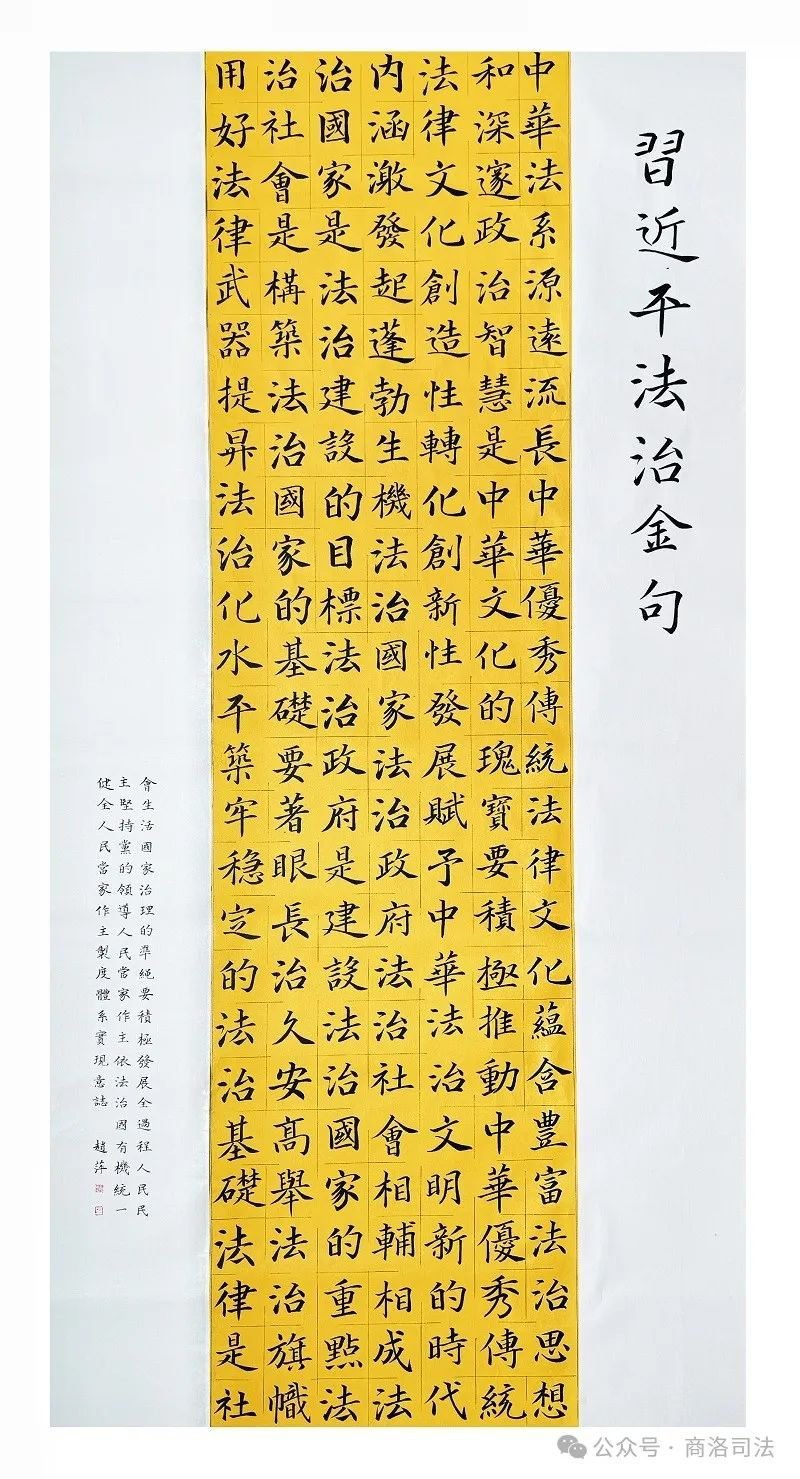 習近平法治金句
中華法系源遠流長中華優秀傳統法律文化蘊含豊富法治思想
和深邃政治智慧是中華文化的瑰寶要積極推動中華優秀傳統
法律文化創造性轉化創新性發展賦予中華法治文明新的時代
内涵激發起蓬勃生機法治國家法治政府法治社會相輔相成法
治國家是法治建設的目標法治政府是建設法治國家的重點法
治社會是構築法治國家的基礎要著眼長治久安高舉法治旗幟
用好法律武器提昇法治化水平築牢穩定的法治基礎法律是社
會生活國家治理的準繩要積極發展全過程人民民
主堅持黨的領導人民當家作主依法治國有機統一
健全人民當家作主製度體系實現意誌 趙萍
公众号·商洛司法